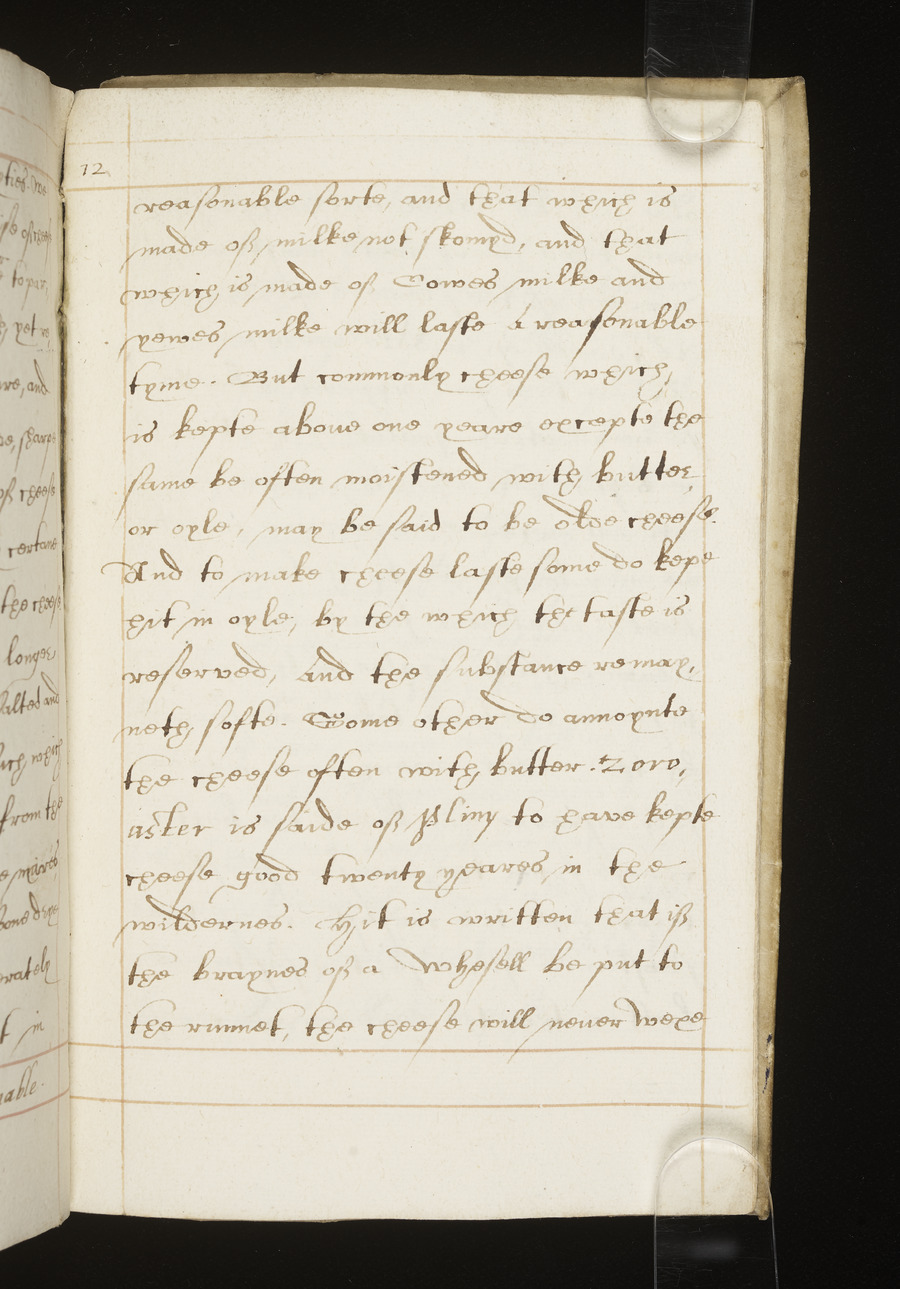 12
reasonable sorte, and that which is
made of milke not skomyd, and that
which is made of Cowes milke and
yewes milke will laste A reasonable
tyme. But commonly cheese which,
is kepte aboue one yeare excepte the
same be often moistened with butter
or oyle, may be said to be olde cheese.
And to make cheese laste some do kepe
hit in oyle, by the which the taste is
reserved, And the substance remay,
neth softe. Some other do annoynte
the cheese often with butter. Zoro,
aster is saide of Pliny to have kepte
cheese good twenty yeares in the
wildernes. Hit is written that if
the braynes of a Whesell be put to
the runnet, the cheese will never wexe
yet
and
sharpe
of cheese
certane
the cheese
longer
salted and
which
from the
rately
in
nable.